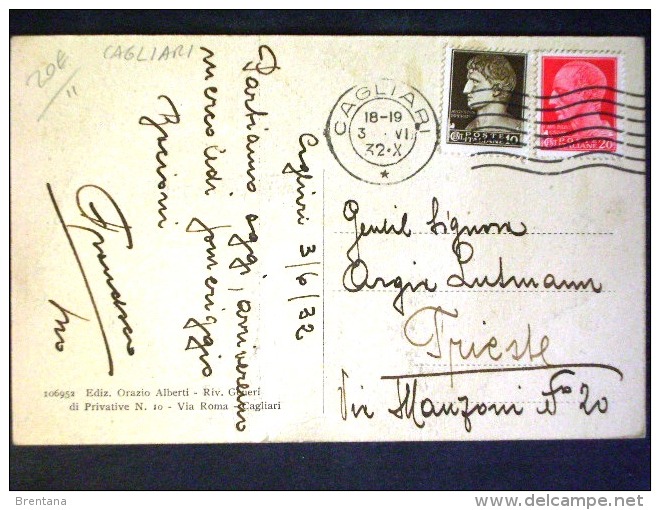 20€
CAGLIARI
Cagliari 3/6/32
Partiamo oggi, arriveremo
mercoledì pomeriggio
Bacioni
Francesco
CAGLIARI
18-19
3 VI
32·X
POSTE
ITALIANE
10
POSTE
ITALIANE
20
Gentil Signora
Argia Lutmann
Trieste
Via Manzoni No 20
106952 Ediz. Orazio Alberti - Riv. Generi
di Privative N. 10 - Via Roma - Cagliari
Brentana
delcampe.net